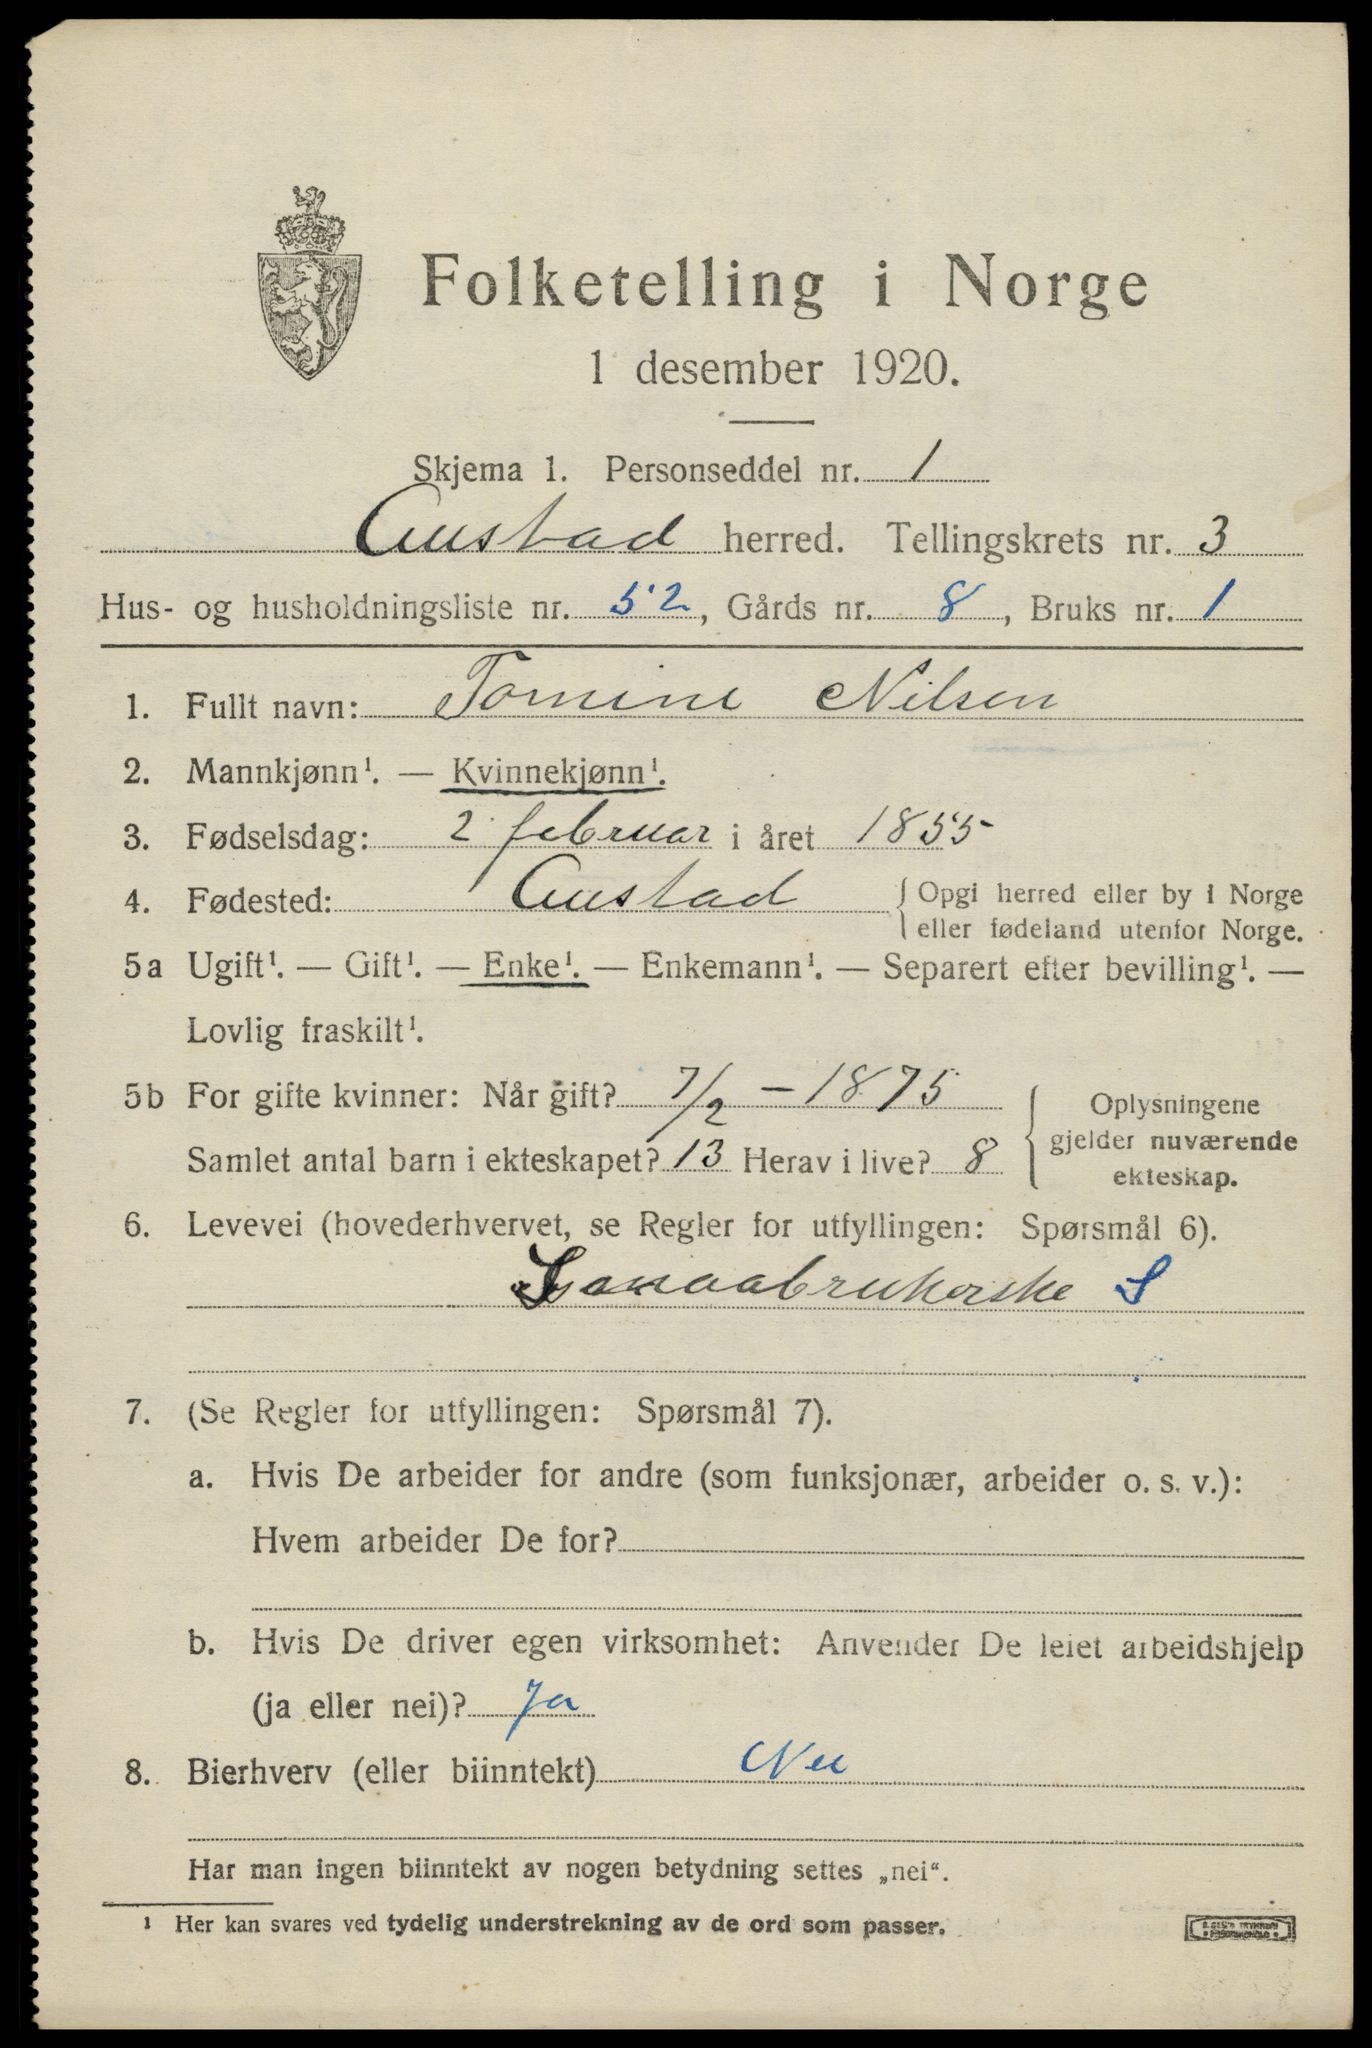 Folketelling i Norge
1 desember 1920.
Skjema 1. Personseddel nr. 1
Austad herred. Tellingskrets nr. 3
Hus- og husholdningsliste nr. 52, Gårds nr. 8, Bruks nr. 1
1. Fullt navn: Tomine Nilsen
2. Mannkjønn¹. — Kvinnekjønn¹.
3. Fødselsdag: 2 februar i året 1855
4. Fødested: Austad { Opgi herred eller by i Norge
eller fødeland utenfor Norge.
5a Ugift¹. — Gift¹. — Enke¹. — Enkemann¹. — Separert efter bevilling¹. —
Lovlig fraskilt¹.
5b For gifte kvinner: Når gift? 7/2 - 1875
Samlet antal barn i ekteskapet? 13 Herav i live? 8
{ Oplysningene
gjelder nuværende
ekteskap.
6. Levevei (hovederhvervet, se Regler for utfyllingen: Spørsmål 6).
Smaabrukerske S
7. (Se Regler for utfyllingen: Spørsmål 7).
a. Hvis De arbeider for andre (som funksjonær, arbeider o. s. v.):
Hvem arbeider De for?
b. Hvis De driver egen virksomhet: Anvender De leiet arbeidshjelp
(ja eller nei)? Ja
8. Bierhverv (eller biinntekt) Nei
Har man ingen biinntekt av nogen betydning settes „nei“.
¹ Her kan svares ved tydelig understrekning av de ord som passer.